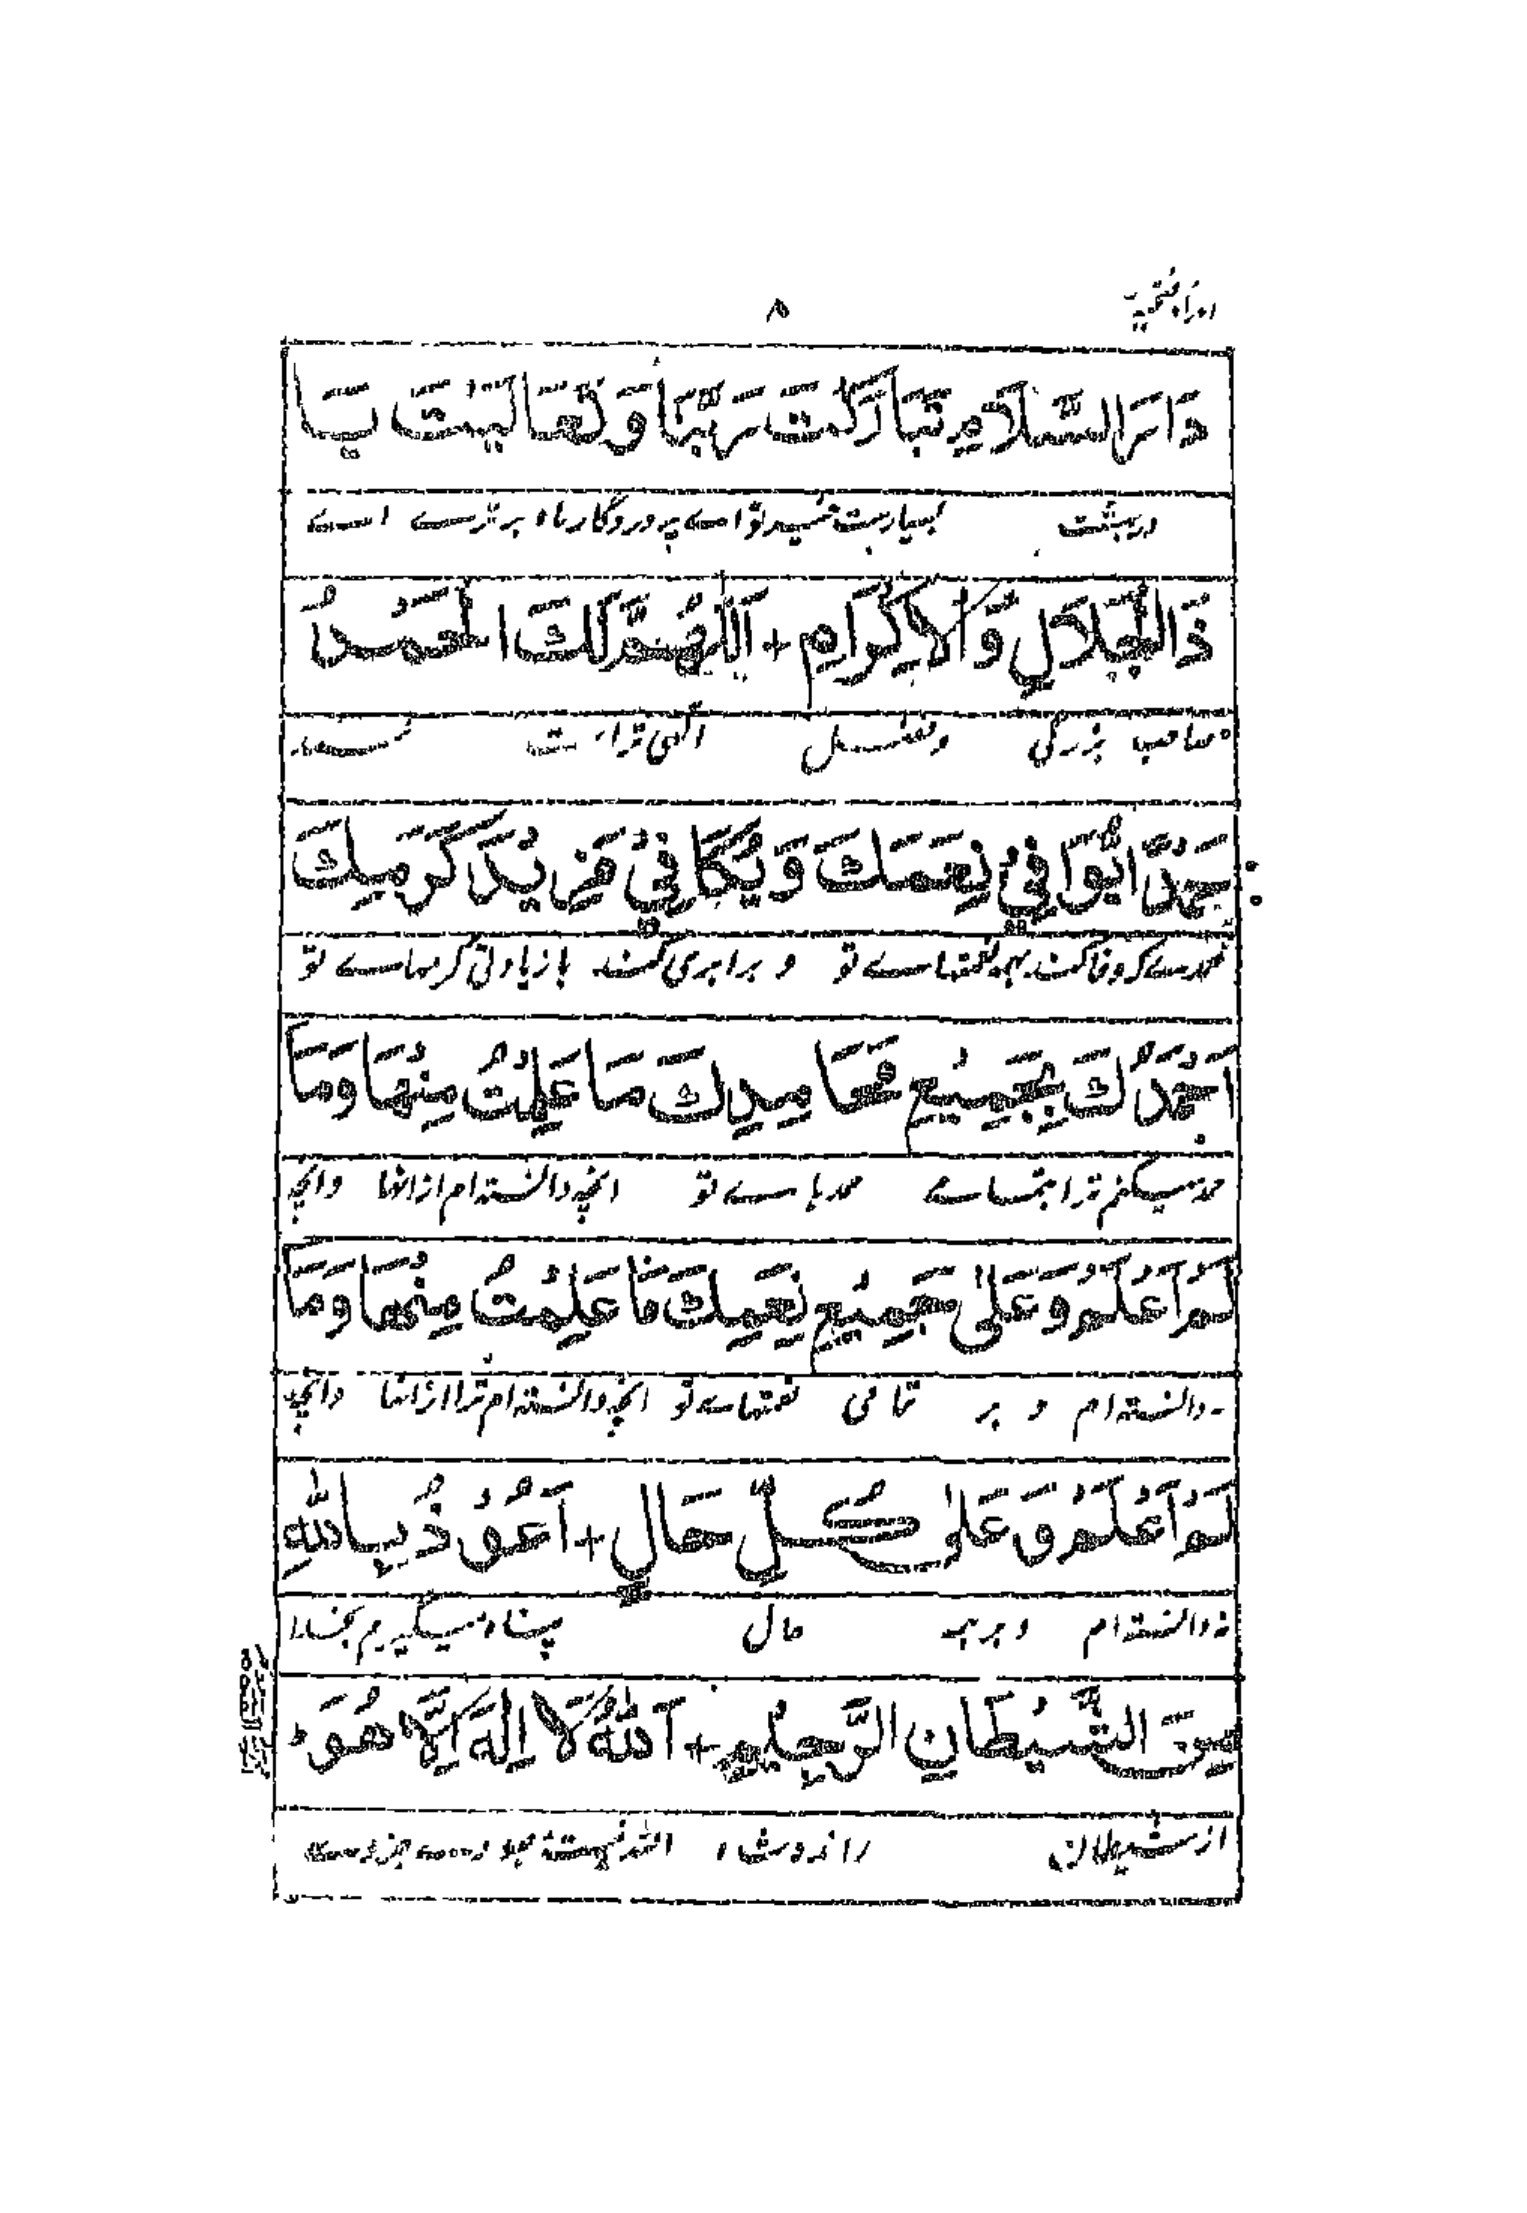 اوراد فتحیہ ۸
دَارَ السَّلَامِ تَبَارَكْتَ رَبَّنَا وَتَعَالَيْتَ يَا
در بہشت بسیار بت تو اے پروردگار ما و برترے اے
ذَا الْجَلَالِ وَالْاِكْرَامِ + اَللّٰهُمَّ لَكَ الْحَمْدُ
صاحب بزرگی وفضل الٰہی تراست
حَمْدًا يُّوَافِيْ نِعَمَكَ وَيُكَافِيْ مَزِيْدَ كَرَمِكَ
حمدے کہ وفا کند بہمہ نعمتہاے تو و برابری کند با زیادتی کرمہاے تو
اَحْمَدُكَ بِجَمِيْعِ مَحَامِدِكَ مَا عَلِمْتُ مِنْهَا وَمَا
حمد میکنم ترا بتماے حمد ہاے تو انچہ دانستہ ام ازانہا وانچہ
لَمْ اَعْلَمْ وَعَلٰى جَمِيْعِ نِعَمِكَ مَا عَلِمْتُ مِنْهَا وَمَا
دانستہ ام و بر تمامی نعمتہاے تو انچہ دانستہ ام ترا ازانہا وانچہ
لَمْ اَعْلَمْ وَعَلٰى كُلِّ حَالٍ + اَعُوْذُ بِاللّٰهِ
نہ دانستہ ام و برہمہ حال پناہ میگیرم بخدا
مِنَ الشَّيْطَانِ الرَّجِيْمِ + اَللّٰهُ لَا اِلٰهَ اِلَّا هُوَ
از شیطان راندہ شدہ اللہ نیست